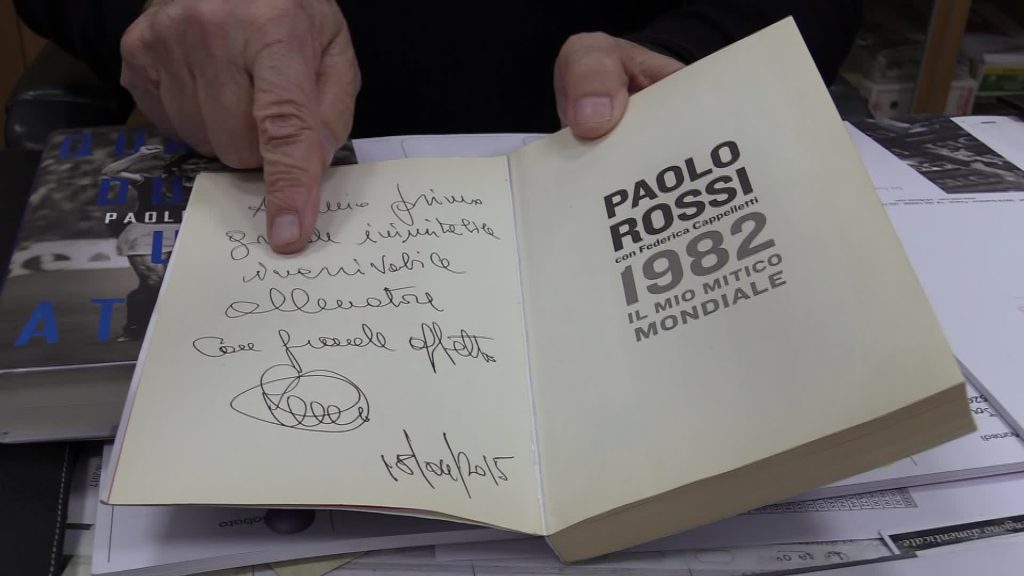 mio primo
grande inimitabile
inarrivabile
allenatore
Con grande affetto
18/04/2015
PAOLO
ROSSI
con Federica Cappelletti
1982
IL MIO MITICO
MONDIALE
PAOL
U
AT
abato